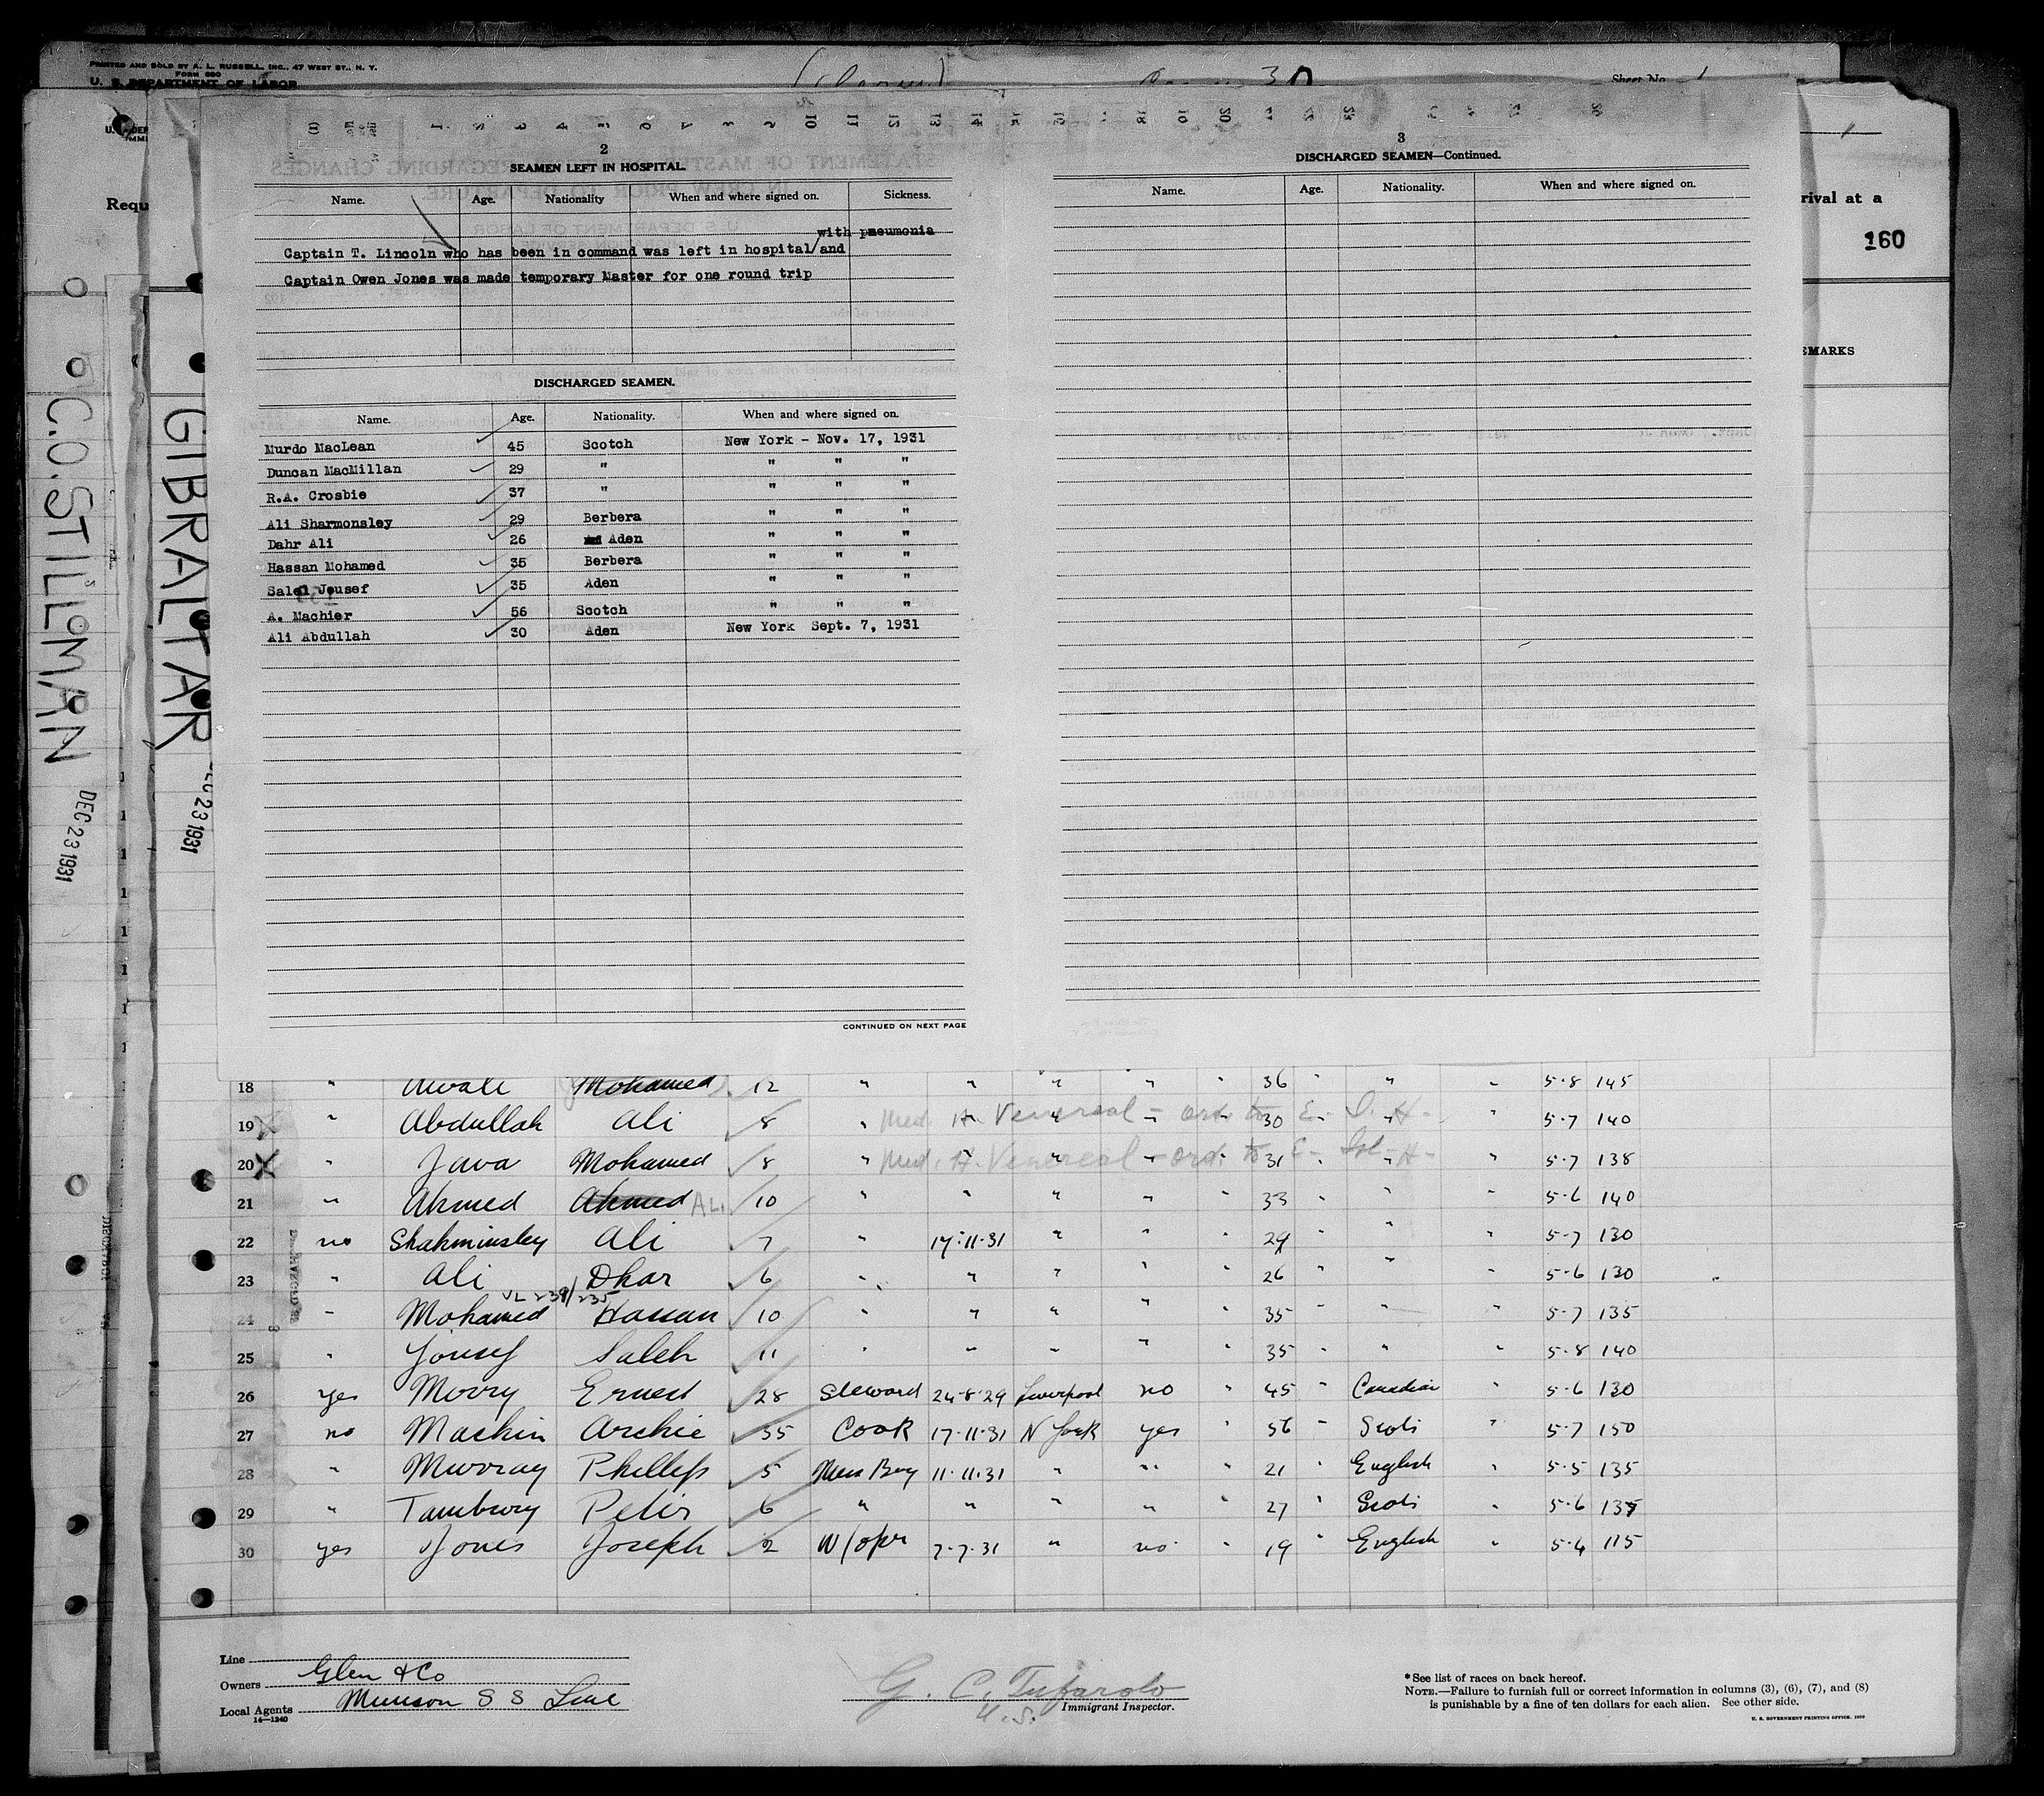 PRINTED AND SOLD BY A. L. RUSSELL, INC., 47 WEST ST., N. Y.
FORM 680
U. S. DEPARTMENT OF LABOR
Sheet No. 1
Requ
rival at a
160
EMARKS
C.O. STILLMAN
DEC 23 1931
GIBRALTAR
DEC 23 1931
2
SEAMEN LEFT IN HOSPITAL.
Name. Age. Nationality When and where signed on. Sickness.
with pneumonia
Captain T. Lincoln who has been in command was left in hospital/and
Captain Owen Jones was made temporary Master for one round trip
DISCHARGED SEAMEN.
Name. Age. Nationality. When and where signed on.
Murdo MacLean 45 Scotch New York - Nov. 17, 1931
Duncan MacMillan 29 " " " "
R.A. Crosbie 37 " " " "
Ali Sharmonsley 29 Berbera " " "
Dahr Ali 26 Aden " " "
Hassan Mohamed 35 Berbera " " "
Salel Jousef 35 Aden " " "
A. Machier 56 Scotch " " "
Ali Abdullah 30 Aden New York Sept. 7, 1931
CONTINUED ON NEXT PAGE
3
DISCHARGED SEAMEN—Continued.
Name. Age. Nationality. When and where signed on.
18 " Awale Mohamed 12 " " " " " 36 " " " 5-8 145
19 " Abdullah Ali 8 " " " " 30 " " 5-7 140
Med. H. Venereal - ord. to E. I. H-
20 " Java Mohamed 8 " " " " 31 " " " 5-7 138
Med. H. Venereal - ord. to E. Isl-H-
21 " Ahmed Ahmed ALi 10 " " " " " 33 " " " 5-6 140
22 no Shahminsley Ali 7 " 17-11-31 " " " 29 " " " 5-7 130
23 " Ali Dhar 6 " " " " " 26 " " 5-6 130
VL 239/235
24 " Mohamed Hassan 10 " " " " " 35 " " " 5-7 135
25 " Yousef Saleh 11 " " " " " 35 " " " 5-8 140
26 yes Morry Ernest 28 Steward 24-8-29 Liverpool no " 45 " Canadian " 5-6 130
27 no Mackin Archie 35 Cook 17-11-31 N York yes " 56 " Scots " 5-7 150
28 " Murray Phillip 5 Mess Boy 11-11-31 " " " 21 " English " 5-5 135
29 " Tambury Peter 6 " " " " " 27 " Scots " 5-6 137
30 yes Jones Joseph 2 W/opr 7-7-31 " no " 19 " English " 5-4 115
Line
Owners Glen & Co
Local Agents Munson S S Line
14—1240
G. C. Tufarolo
U.S. Immigrant Inspector.
*See list of races on back hereof.
NOTE.—Failure to furnish full or correct information in columns (3), (6), (7), and (8)
is punishable by a fine of ten dollars for each alien. See other side.
U. S. GOVERNMENT PRINTING OFFICE. 1929